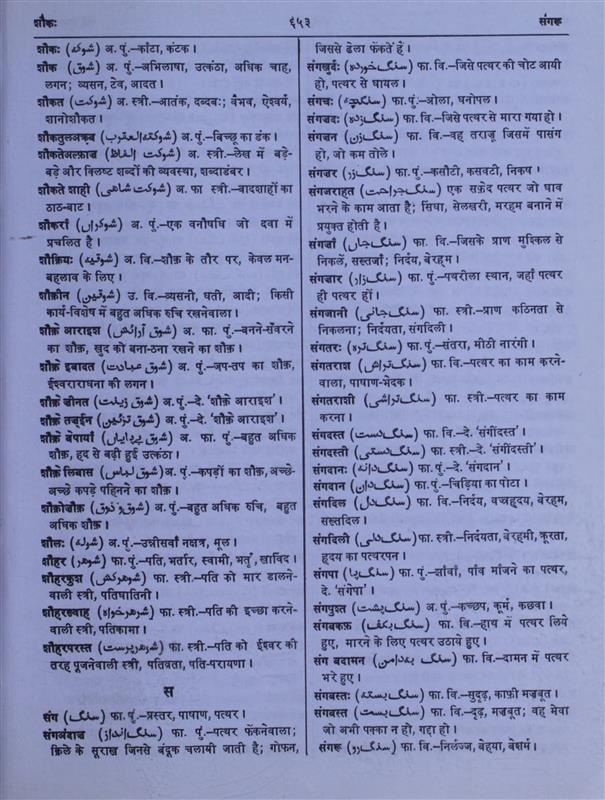 शौकः
६५३
संगरू
शौकः (شوكه) अ. पुं.–काँटा, कंटक ।
शौक़ (شوق) अ. पुं.–अभिलाषा, उत्कंठा, अधिक चाह,
लगन; व्यसन, टेव, आदत ।
शौकत (شوكت) अ. स्त्री.–आतंक, दब्दबः; वैभव, ऐश्वर्य,
शानोशौकत ।
शौकतुलअक़्रब (شوكتهالعقرب) अ. पुं.–बिच्छू का डंक ।
शौकतेअल्फ़ाज़ (شوكت الفاظ) अ. स्त्री.–लेख में बड़े-
बड़े और क्लिष्ट शब्दों की व्यवस्था, शब्दाडंबर ।
शौकते शाही (شوكت شاهى) अ. फा स्त्री.–बादशाहों का
ठाठ-बाट ।
शौकराँ (شوكراں) अ. पुं.–एक वनौषधि जो दवा में
प्रचलित है ।
शौक़ियः (شوقيه) अ. वि.–शौक़ के तौर पर, केवल मन-
बहलाव के लिए ।
शौक़ीन (شوقين) उ. वि.–व्यसनी, धती, आदी; किसी
कार्य-विशेष में बहुत अधिक रुचि रखनेवाला ।
शौक़े आराइश (شوق آرائش) अ. फा. पुं.–बनने-सँवरने
का शौक़, खुद को बना-ठना रखने का शौक़ ।
शौक़े इबादत (شوق عبادت) अ. पुं.–जप-तप का शौक़,
ईश्वराराधना की लगन ।
शौक़े ज़ीनत (شوق زينت) अ. पुं.–दे. ‘शौक़े आराइश’ ।
शौक़े तज़्ईन (شوق تزئين) अ. पुं.–दे. ‘शौक़े आराइश’ ।
शौक़े बेपायाँ (شوق بےپاياں) अ. फा. पुं.–बहुत अधिक
शौक़, हद से बढ़ी हुई उत्कंठा ।
शौक़े लिबास (شوق لباس) अ. पुं.–कपड़ों का शौक़, अच्छे-
अच्छे कपड़े पहिनने का शौक़ ।
शौक़ोज़ौक़ (شوق و ذوق) अ. पुं.–बहुत अधिक रुचि, बहुत
अधिक शौक़ ।
शौलः (شوله) अ. पुं.–उन्नीसवाँ नक्षत्र, मूल ।
शौहर (شوهر) फा. पुं.–पति, भर्तार, स्वामी, भर्तृ, खाविंद ।
शौहरकुश (شوهركش) फा. स्त्री.–पति को मार डालने-
वाली स्त्री, पतिघातिनी ।
शौहरख़्वाह (شوهرخواه) फा. स्त्री.–पति की इच्छा करने-
वाली स्त्री, पतिकामा ।
शौहरपरस्त (شوهرپرست) फा. स्त्री.–पति को ईश्वर की
तरह पूजनेवाली स्त्री, पतिव्रता, पति-परायणा ।
स
संग (سنگ) फा. पुं.–प्रस्तर, पाषाण, पत्थर ।
संगअंदाज़ (سنگ انداز) फा. पुं.–पत्थर फेंकनेवाला;
क़िले के सूराख जिनसे बंदूक चलायी जाती है; गोफन,
जिससे ढेला फेंकते हैं ।
संगख़ुर्दः (سنگ خورده) फा. वि.–जिसे पत्थर की चोट आयी
हो, पत्थर से घायल ।
संगचः (سنگچه) फा. पुं.–ओला, घनोपल ।
संगज़दः (سنگ زده) फा. वि.–जिसे पत्थर से मारा गया हो ।
संगज़न (سنگ زن) फा. वि.–वह तराज़ू जिसमें पासंग
हो, जो कम तोले ।
संगज़र (سنگ زر) फा. पुं.–कसौटी, कसवटी, निकष ।
संगजराहत (سنگ جراحت) एक सफ़ेद पत्थर जो घाव
भरने के काम आता है; सिंघा, सेलखरी, मरहम बनाने में
प्रयुक्त होती है ।
संगजाँ (سنگ جاں) फा. वि.–जिसके प्राण मुश्किल से
निकलें, सख्तजाँ; निर्दय, बेरहम ।
संगज़ार (سنگ زار) फा. पुं.–पथरीला स्थान, जहाँ पत्थर
ही पत्थर हों ।
संगजानी (سنگ جانى) फा. स्त्री.–प्राण कठिनता से
निकलना; निर्दयता, संगदिली ।
संगतरः (سنگ تره) फा. पुं.–संतरा, मीठी नारंगी ।
संगतराश (سنگ تراش) फा. वि.–पत्थर का काम करने-
वाला, पाषाण-भेदक ।
संगतराशी (سنگ تراشى) फा. स्त्री.–पत्थर का काम
करना ।
संगदस्त (سنگ دست) फा. वि.–दे. ‘संगींदस्त’ ।
संगदस्ती (سنگ دستى) फा. स्त्री.–दे. ‘संगींदस्ती’ ।
संगदानः (سنگ دانه) फा. पुं.–दे. ‘संगदान’ ।
संगदान (سنگ دان) फा. पुं.–चिड़िया का पोटा ।
संगदिल (سنگ دل) फा. वि.–निर्दय, वज्रहृदय, बेरहम,
सख्तदिल ।
संगदिली (سنگ دلى) फा. स्त्री.–निर्दयता, बेरहमी, क्रूरता,
हृदय का पत्थरपन ।
संगपा (سنگ پا) फा. पुं.–झाँवाँ, पाँव माँजने का पत्थर,
दे. ‘संगेपा’ ।
संगपुश्त (سنگ پشت) अ. पुं.–कच्छप, कूर्म, कछवा ।
संगबकफ़ (سنگ بكف) फा. वि.–हाथ में पत्थर लिये
हुए, मारने के लिए पत्थर उठाये हुए ।
संग बदामन (سنگ بهدامن) फा. वि.–दामन में पत्थर
भरे हुए ।
संगबस्तः (سنگ بسته) फा. वि.–सुदृढ़, काफ़ी मज़बूत ।
संगबस्त (سنگ بست) फा. वि.–दृढ़, मज़बूत; वह मेवा
जो अभी पक्का न हो, गद्दा हो ।
संगरू (سنگ رو) फा. वि.–निर्लज्ज, बेहया, बेशर्म ।